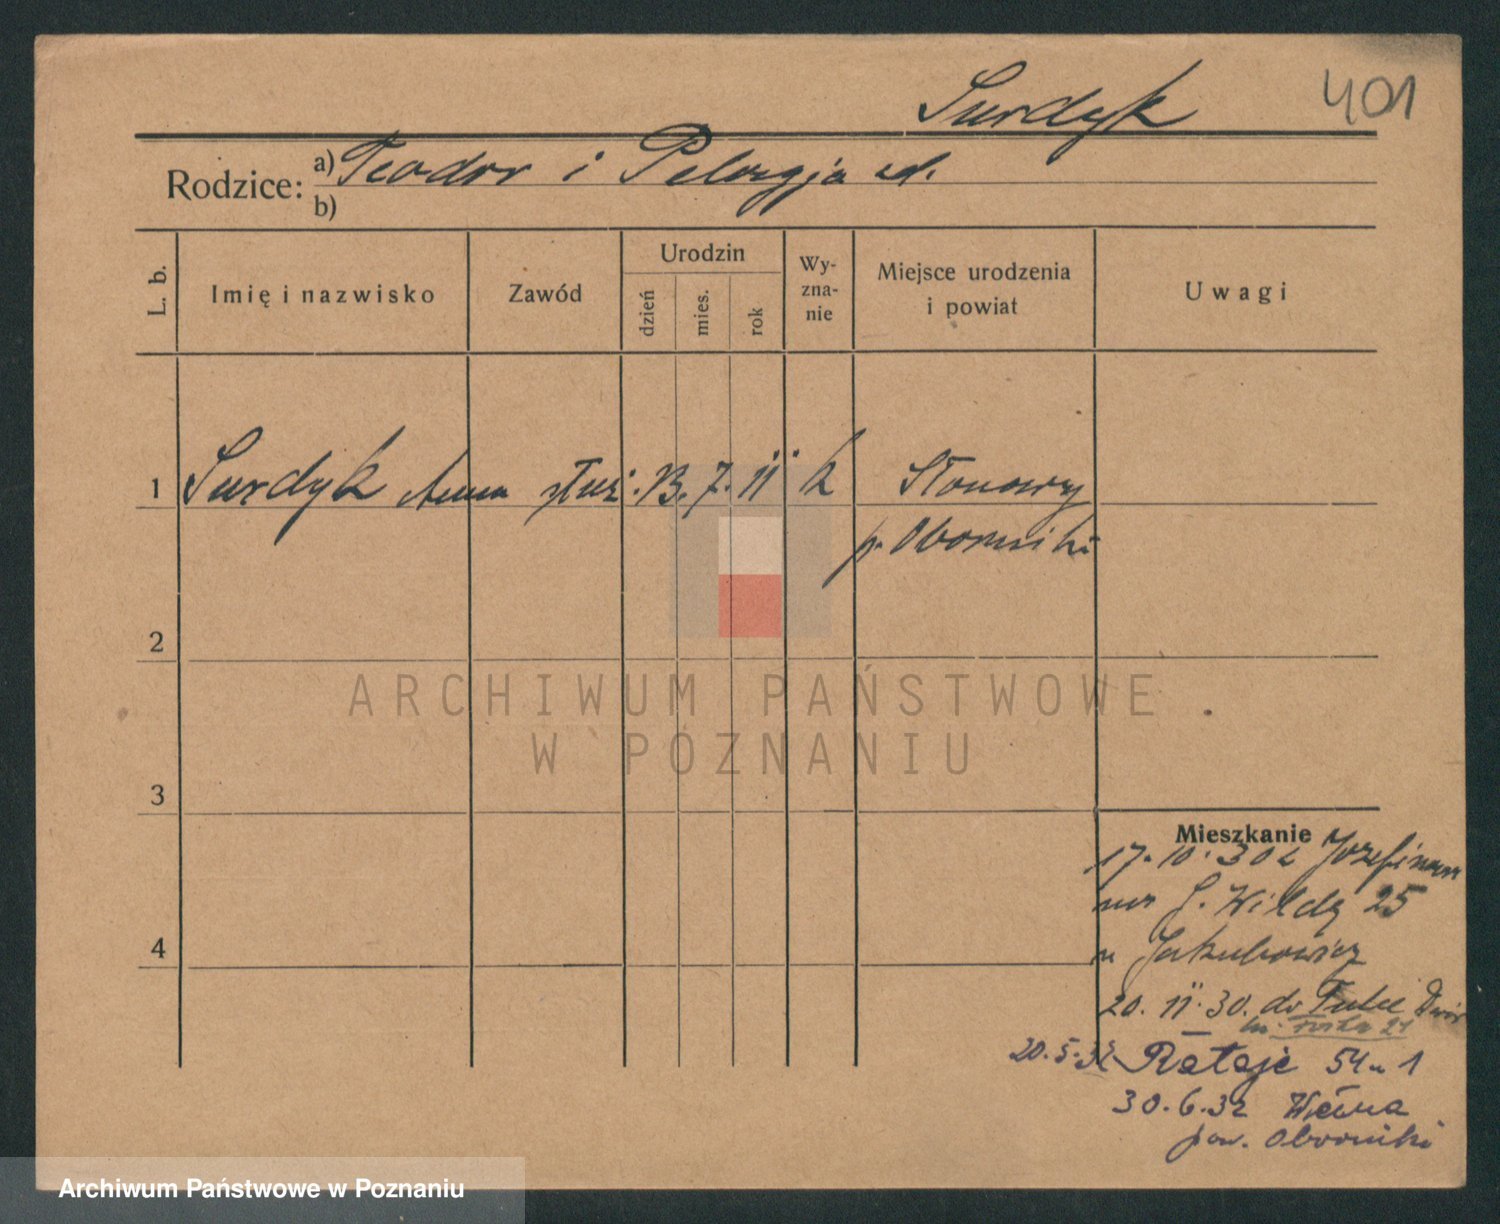 Surdyk 401
Rodzice: a) Teodor i Pelagja
b)
L. b. Imię i nazwisko Zawód Urodzin dzień mies. rok Wy-zna-nie Miejsce urodzenia i powiat Uwagi
1 Surdyk Anna służ. 13. 7. 11 k Słonawy
p. Oborniki
2
ARCHIWUM PAŃSTWOWE
W POZNANIU
3
Mieszkanie
17. 10. 30 z Józefinowa
G. Wilda 25
u Jakubowicz
20. 11. 30. do Tulce Dwór
20.5.32 Rataje 54 1
30.6.32 Wełna
pow. Oborniki
4
Archiwum Państwowe w Poznaniu